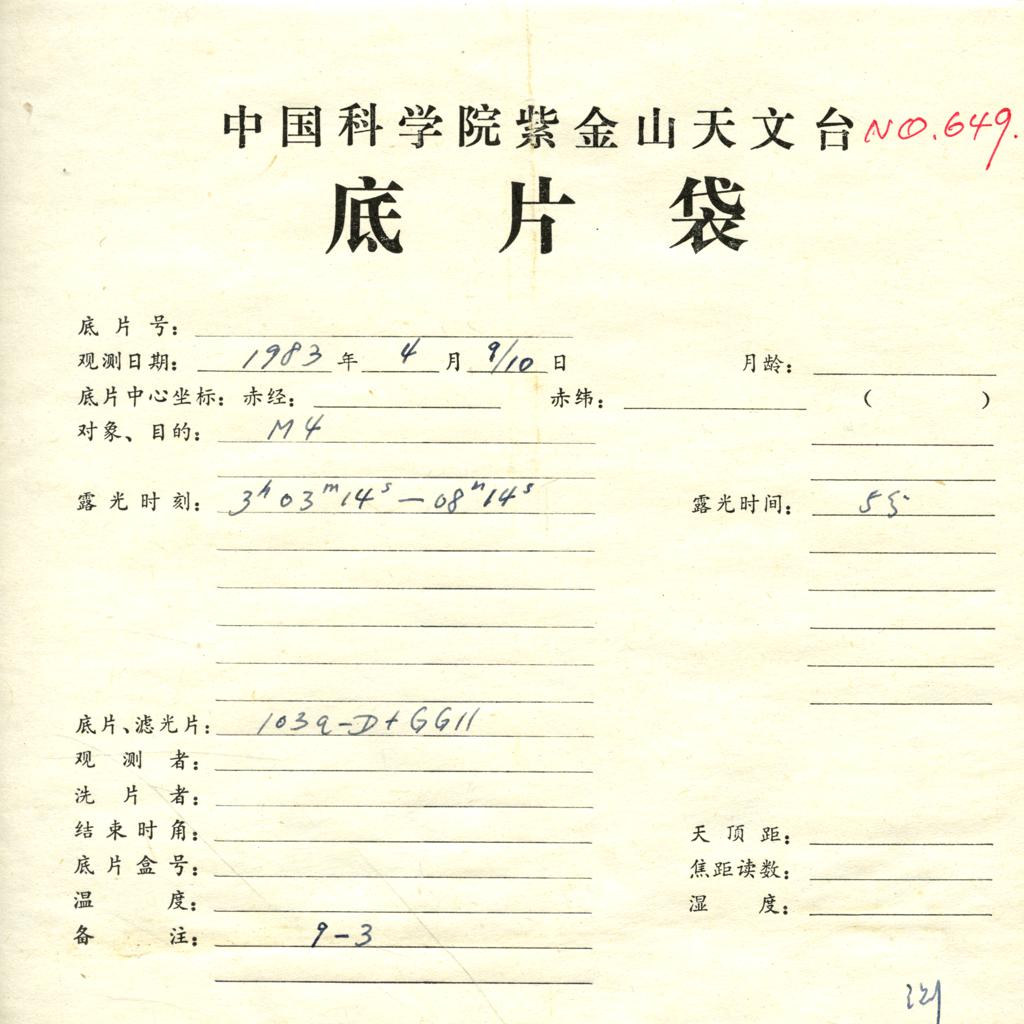 中国科学院紫金山天文台 NO.649.
底片袋
底片号：
观测日期： 1983 年 4 月 9/10 日 月龄：
底片中心坐标：赤经： 赤纬： （ ）
对象、目的： M4
露光时刻： 3h 03m 14s — 08m 14s 露光时间： 5分
底片、滤光片： 103a-D+GG11
观测者：
洗片者：
结束时角： 天顶距：
底片盒号： 焦距读数：
温度： 湿度：
备注： 9-3